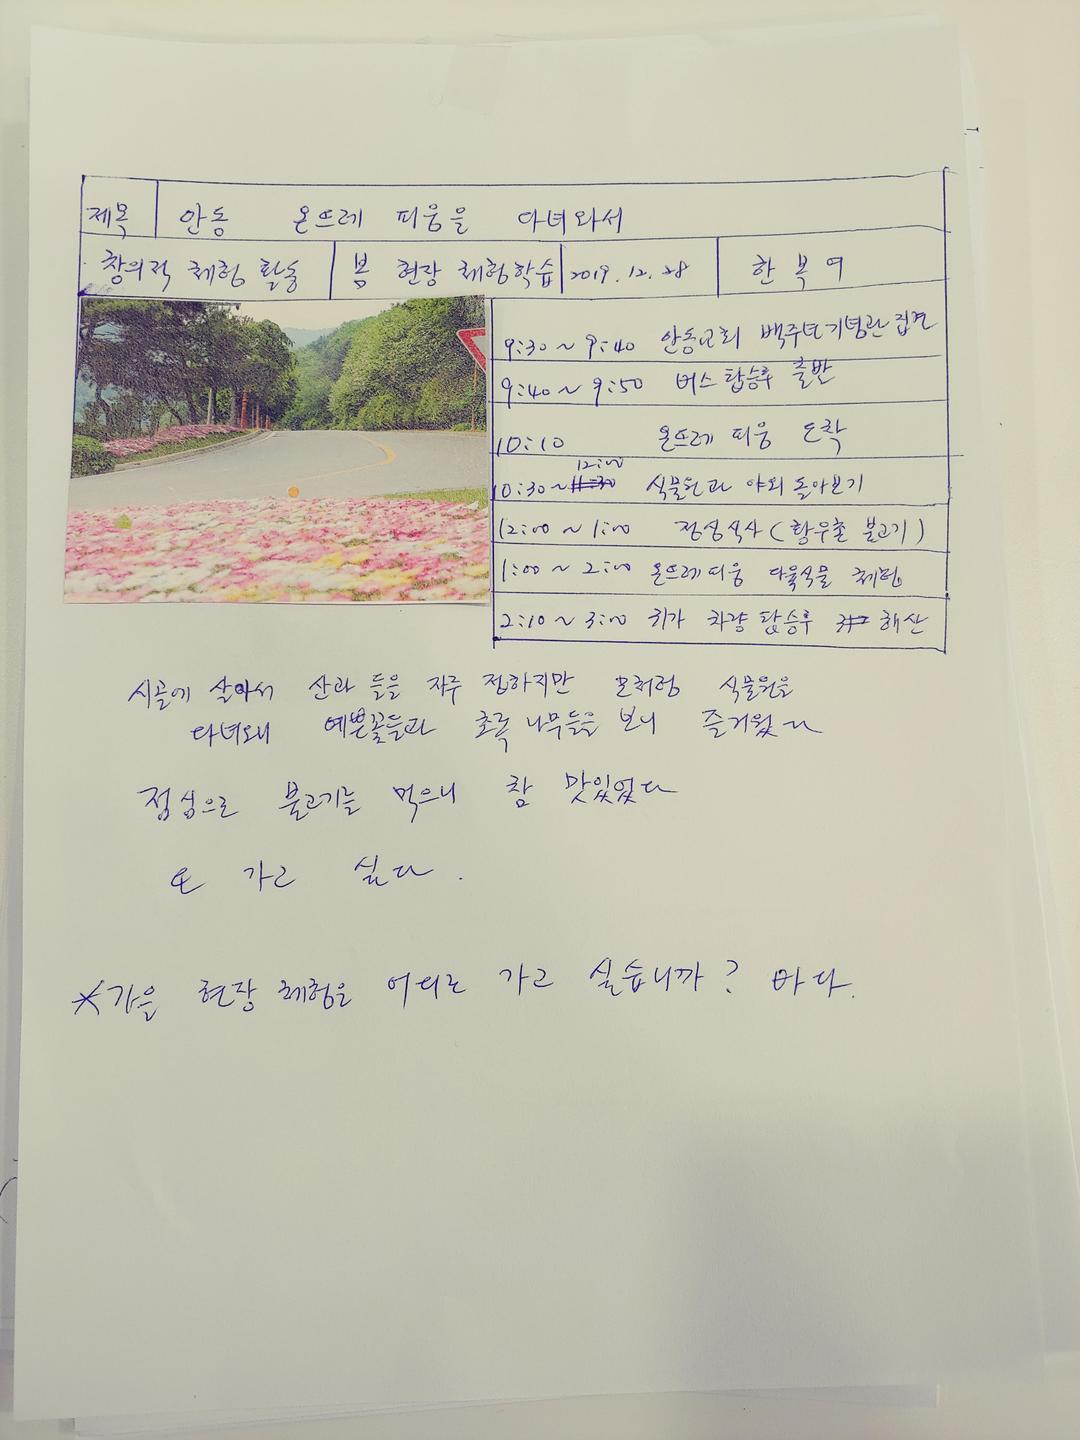 제목 안동 온뜨레 피움을 다녀와서
창의적 체험 활동 봄 현장 체험학습 2019.12.28 한복여
9:30 ~ 9:40 안동교회 백주년기념관 집결
9:40 ~ 9:50 버스 탑승후 출발
10:10 온뜨레 피움 도착
10:30 ~ 12:00 식물원과 야외 돌아보기
12:00 ~ 1:00 점심식사 (황우촌 불고기)
1:00 ~ 2:00 온뜨레피움 다육식물 체험
2:10 ~ 3:00 귀가 차량 탑승후 해산
시골에 살아서 산과 들을 자주 접하지만 모처럼 식물원을
다녀오니 예쁜꽃들과 초록 나무들을 보니 즐거웠다
점심으로 불고기를 먹으니 참 맛있었다
또 가고 싶다.
*가을 현장 체험을 어디로 가고 싶습니까? 바다.